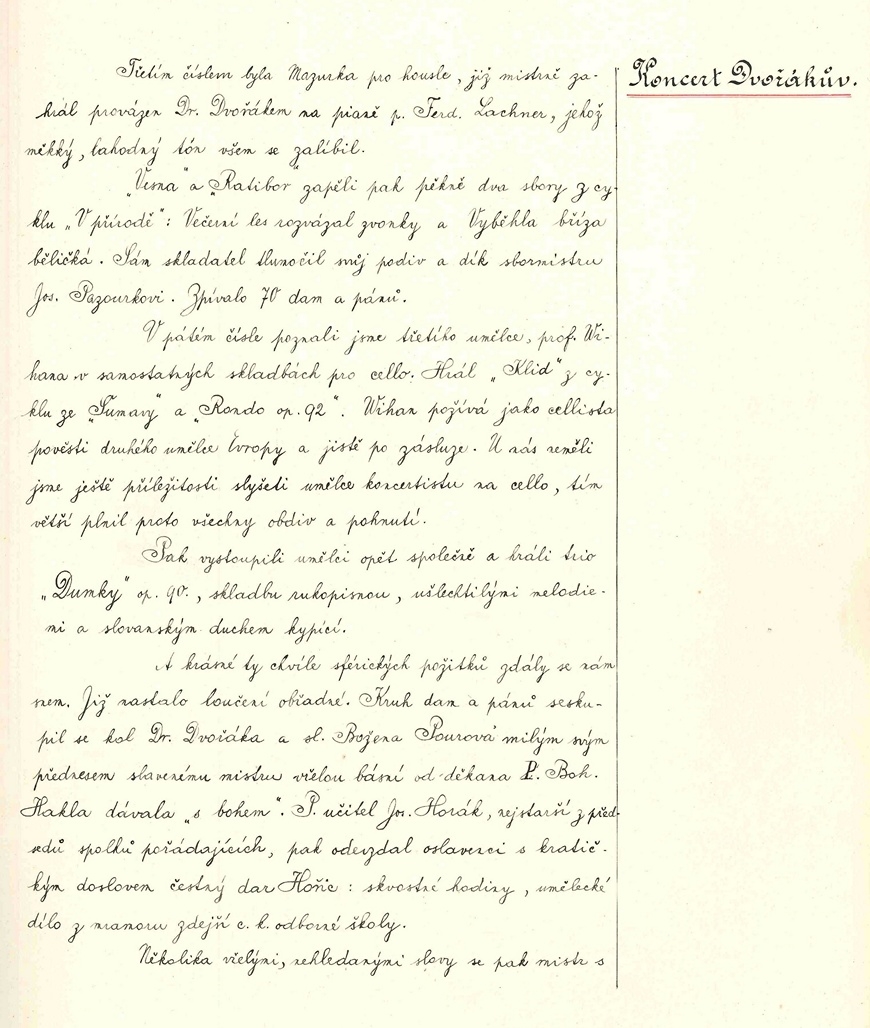 Koncert Dvořákův.
Třetím číslem byla Mazurka pro housle, již mistrně za-
hrál provázen Dr. Dvořákem na pianě p. Ferd. Lachner, jehož
měkký, lahodný tón všem se zalíbil.
„Vesna" a „Ratibor" zapěli pak pěkně dva sbory z cy-
klu „V přírodě": Večerní les rozvázal zvonky a Vyběhla bříza
běličká. Sám skladatel tlumočil svůj podiv a dík sbormistru
Jos. Pazourkovi. Zpívalo 70 dam a pánů.
V pátém čísle poznali jsme třetího umělce, prof. Wi-
hana v samostatných skladbách pro cello. Hrál „Klid" z cy-
klu ze „Šumavy" a „Rondo op. 92". Wihan požívá jako cellista
pověsti druhého umělce Evropy a jistě po zásluze. U nás neměli
jsme ještě příležitosti slyšeti umělce koncertistu na cello, tím
větší plnil proto všechny obdiv a pohnutí.
Pak vystoupili umělci opět společně a hráli trio
„Dumky" op. 90., skladbu rukopisnou, ušlechtilými melodie-
mi a slovanským duchem kypící.
A krásné ty chvíle sférických požitků zdály se nám
snem. Již nastalo loučení obřadné. Kruh dam a pánů sesku-
pil se kol Dr. Dvořáka a sl. Božena Pourová milým svým
přednesem slavenému mistru vřelou básní od děkana P. Boh.
Hakla dávala „s bohem". P. učitel Jos. Horák, nejstarší z před-
sedů spolků pořádajících, pak odevzdal oslavenci s kratič-
kým doslovem čestný dar Hořic: skvostné hodiny, umělecké
dílo z mramoru zdejší c. k. odborné školy.
Několika vřelými, nehledanými slovy se pak mistr s